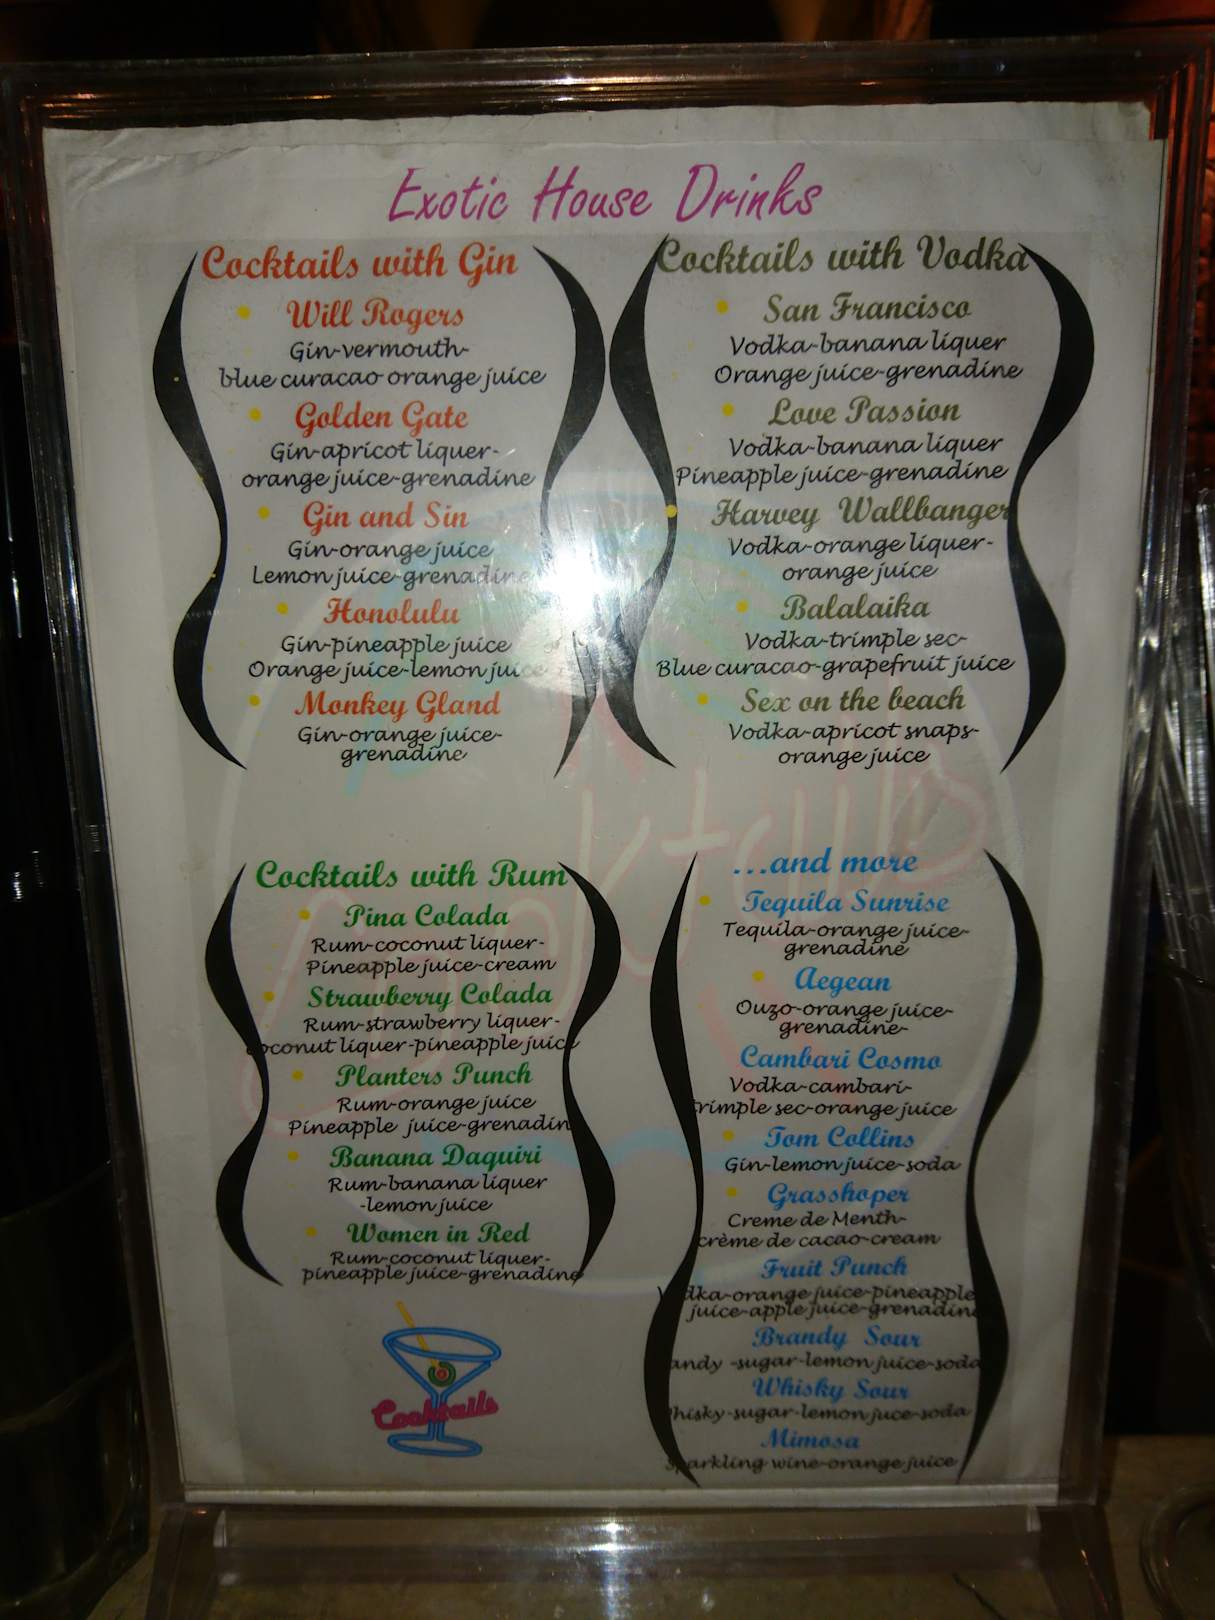 Exotic House Drinks
Cocktails with Gin
Will Rogers
Gin-vermouth-
blue curacao orange juice
Golden Gate
Gin-apricot liquer-
orange juice-grenadine
Gin and Sin
Gin-orange juice
Lemon juice-grenadine
Honolulu
Gin-pineapple juice
Orange juice-lemon juice
Monkey Gland
Gin-orange juice-
grenadine
Cocktails with Vodka
San Francisco
Vodka-banana liquer
Orange juice-grenadine
Love Passion
Vodka-banana liquer
Pineapple juice-grenadine
Harvey Wallbanger
Vodka-orange liquer-
orange juice
Balalaika
Vodka-trimple sec-
Blue curacao-grapefruit juice
Sex on the beach
Vodka-apricot snaps-
orange juice
Cocktails with Rum
Pina Colada
Rum-coconut liquer-
Pineapple juice-cream
Strawberry Colada
Rum-strawberry liquer-
coconut liquer-pineapple juice
Planters Punch
Rum-orange juice
Pineapple juice-grenadin
Banana Daquiri
Rum-banana liquer
-lemon juice
Women in Red
Rum-coconut liquer-
pineapple juice-grenadine
Cocktails
...and more
Tequila Sunrise
Tequila-orange juice-
grenadine
Aegean
Ouzo-orange juice-
grenadine-
Cambari Cosmo
Vodka-cambari-
trimple sec-orange juice
Tom Collins
Gin-lemon juice-soda
Grasshoper
Creme de Menth-
crème de cacao-cream
Fruit Punch
Vodka-orange juice-pineapple
juice-apple juice-grenadine
Brandy Sour
andy -sugar-lemon juice-soda
Whisky Sour
hisky-sugar-lemon juce-soda
Mimosa
Sparkling wine-orange juice